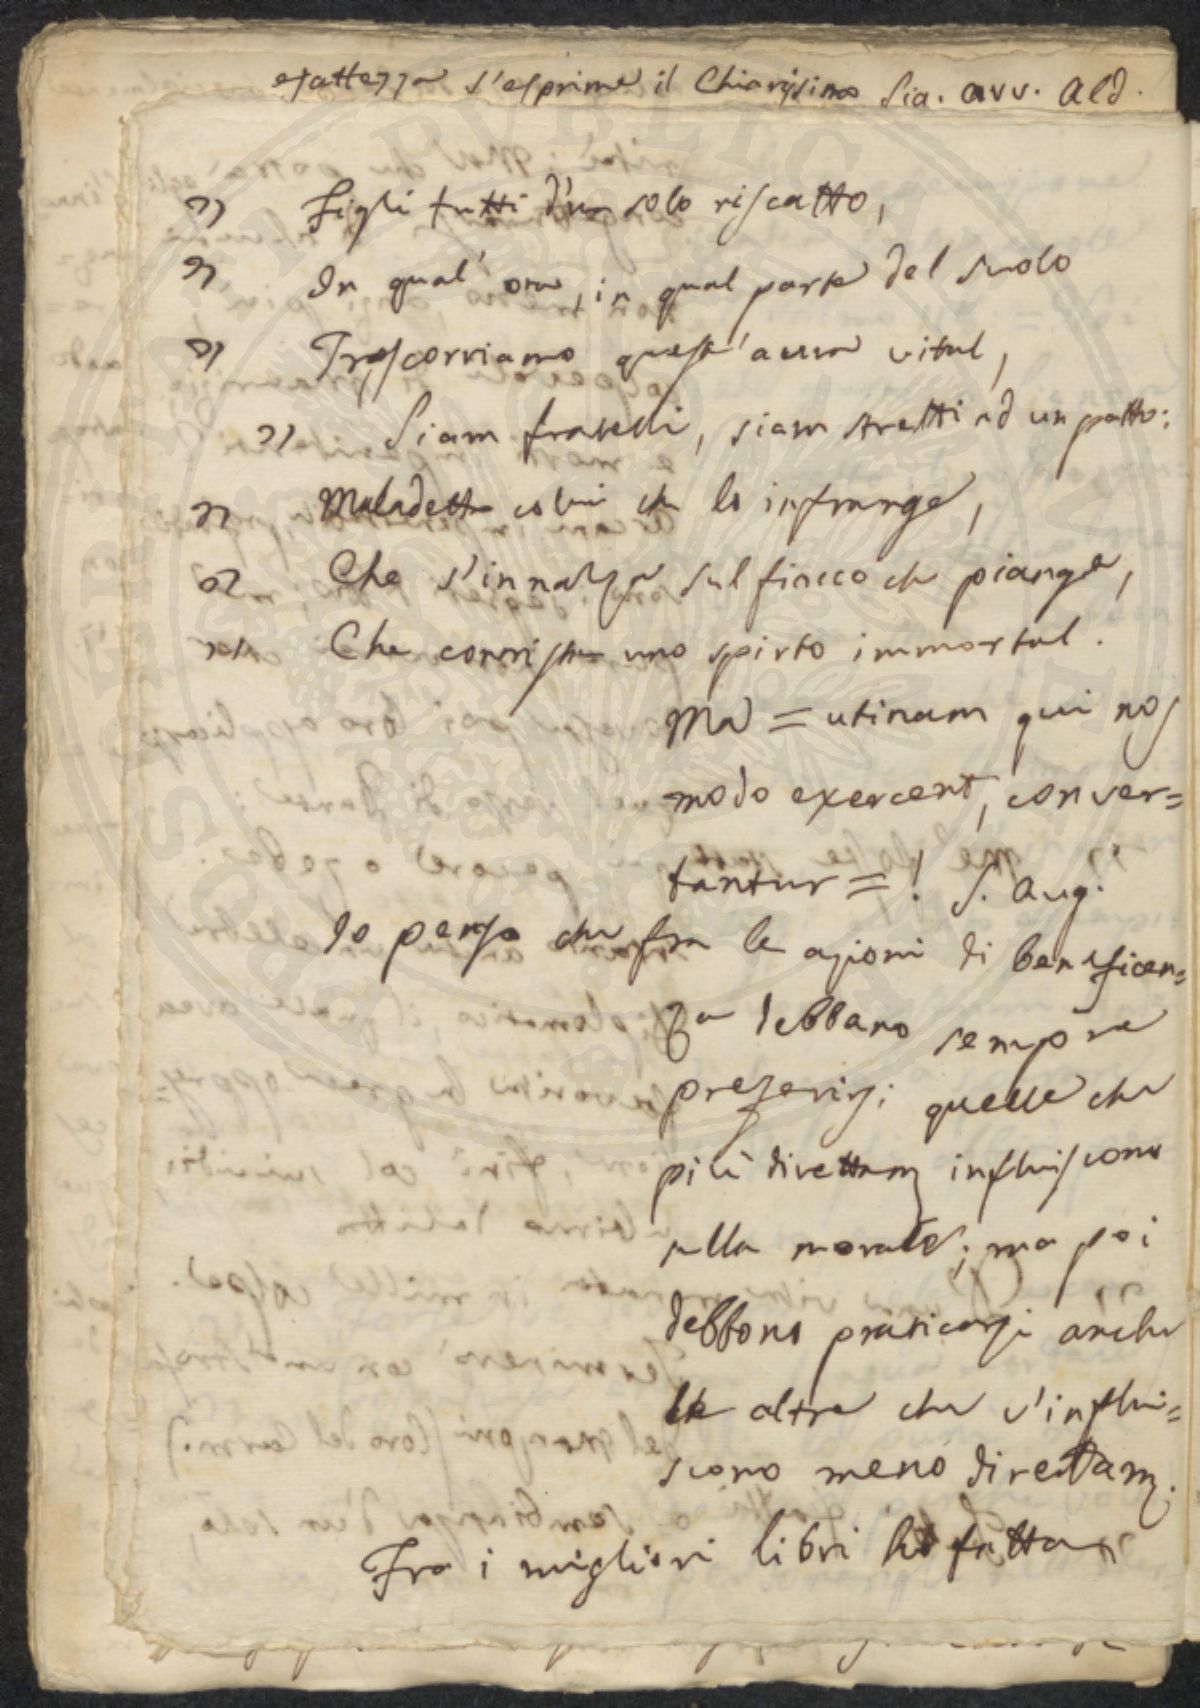 esattezza s'esprime il Chiarissimo Sig. avv. Ald.
" Figli tutti d'un solo riscatto,
" In qual' ora, in qual parte del suolo
" Trascorriamo quest'aura vital,
" Siam fratelli, siam stretti ad un patto:
" Maladetto colui che lo infrange,
" Che s'innalza sul fiacco che piange,
" Che contrista uno spirto immortal.
Ma = utinam qui nos
modo exercent, conver=
tantur =! S. Aug.
Io penso che fra le azioni di beneficen=
za debbano sempre
preferirsi quelle che
più direttam influiscono
sulla morale; ma poi
debbono praticarsi anche
le altre che v'influi=
scono meno direttam.
Fra i migliori libri ho